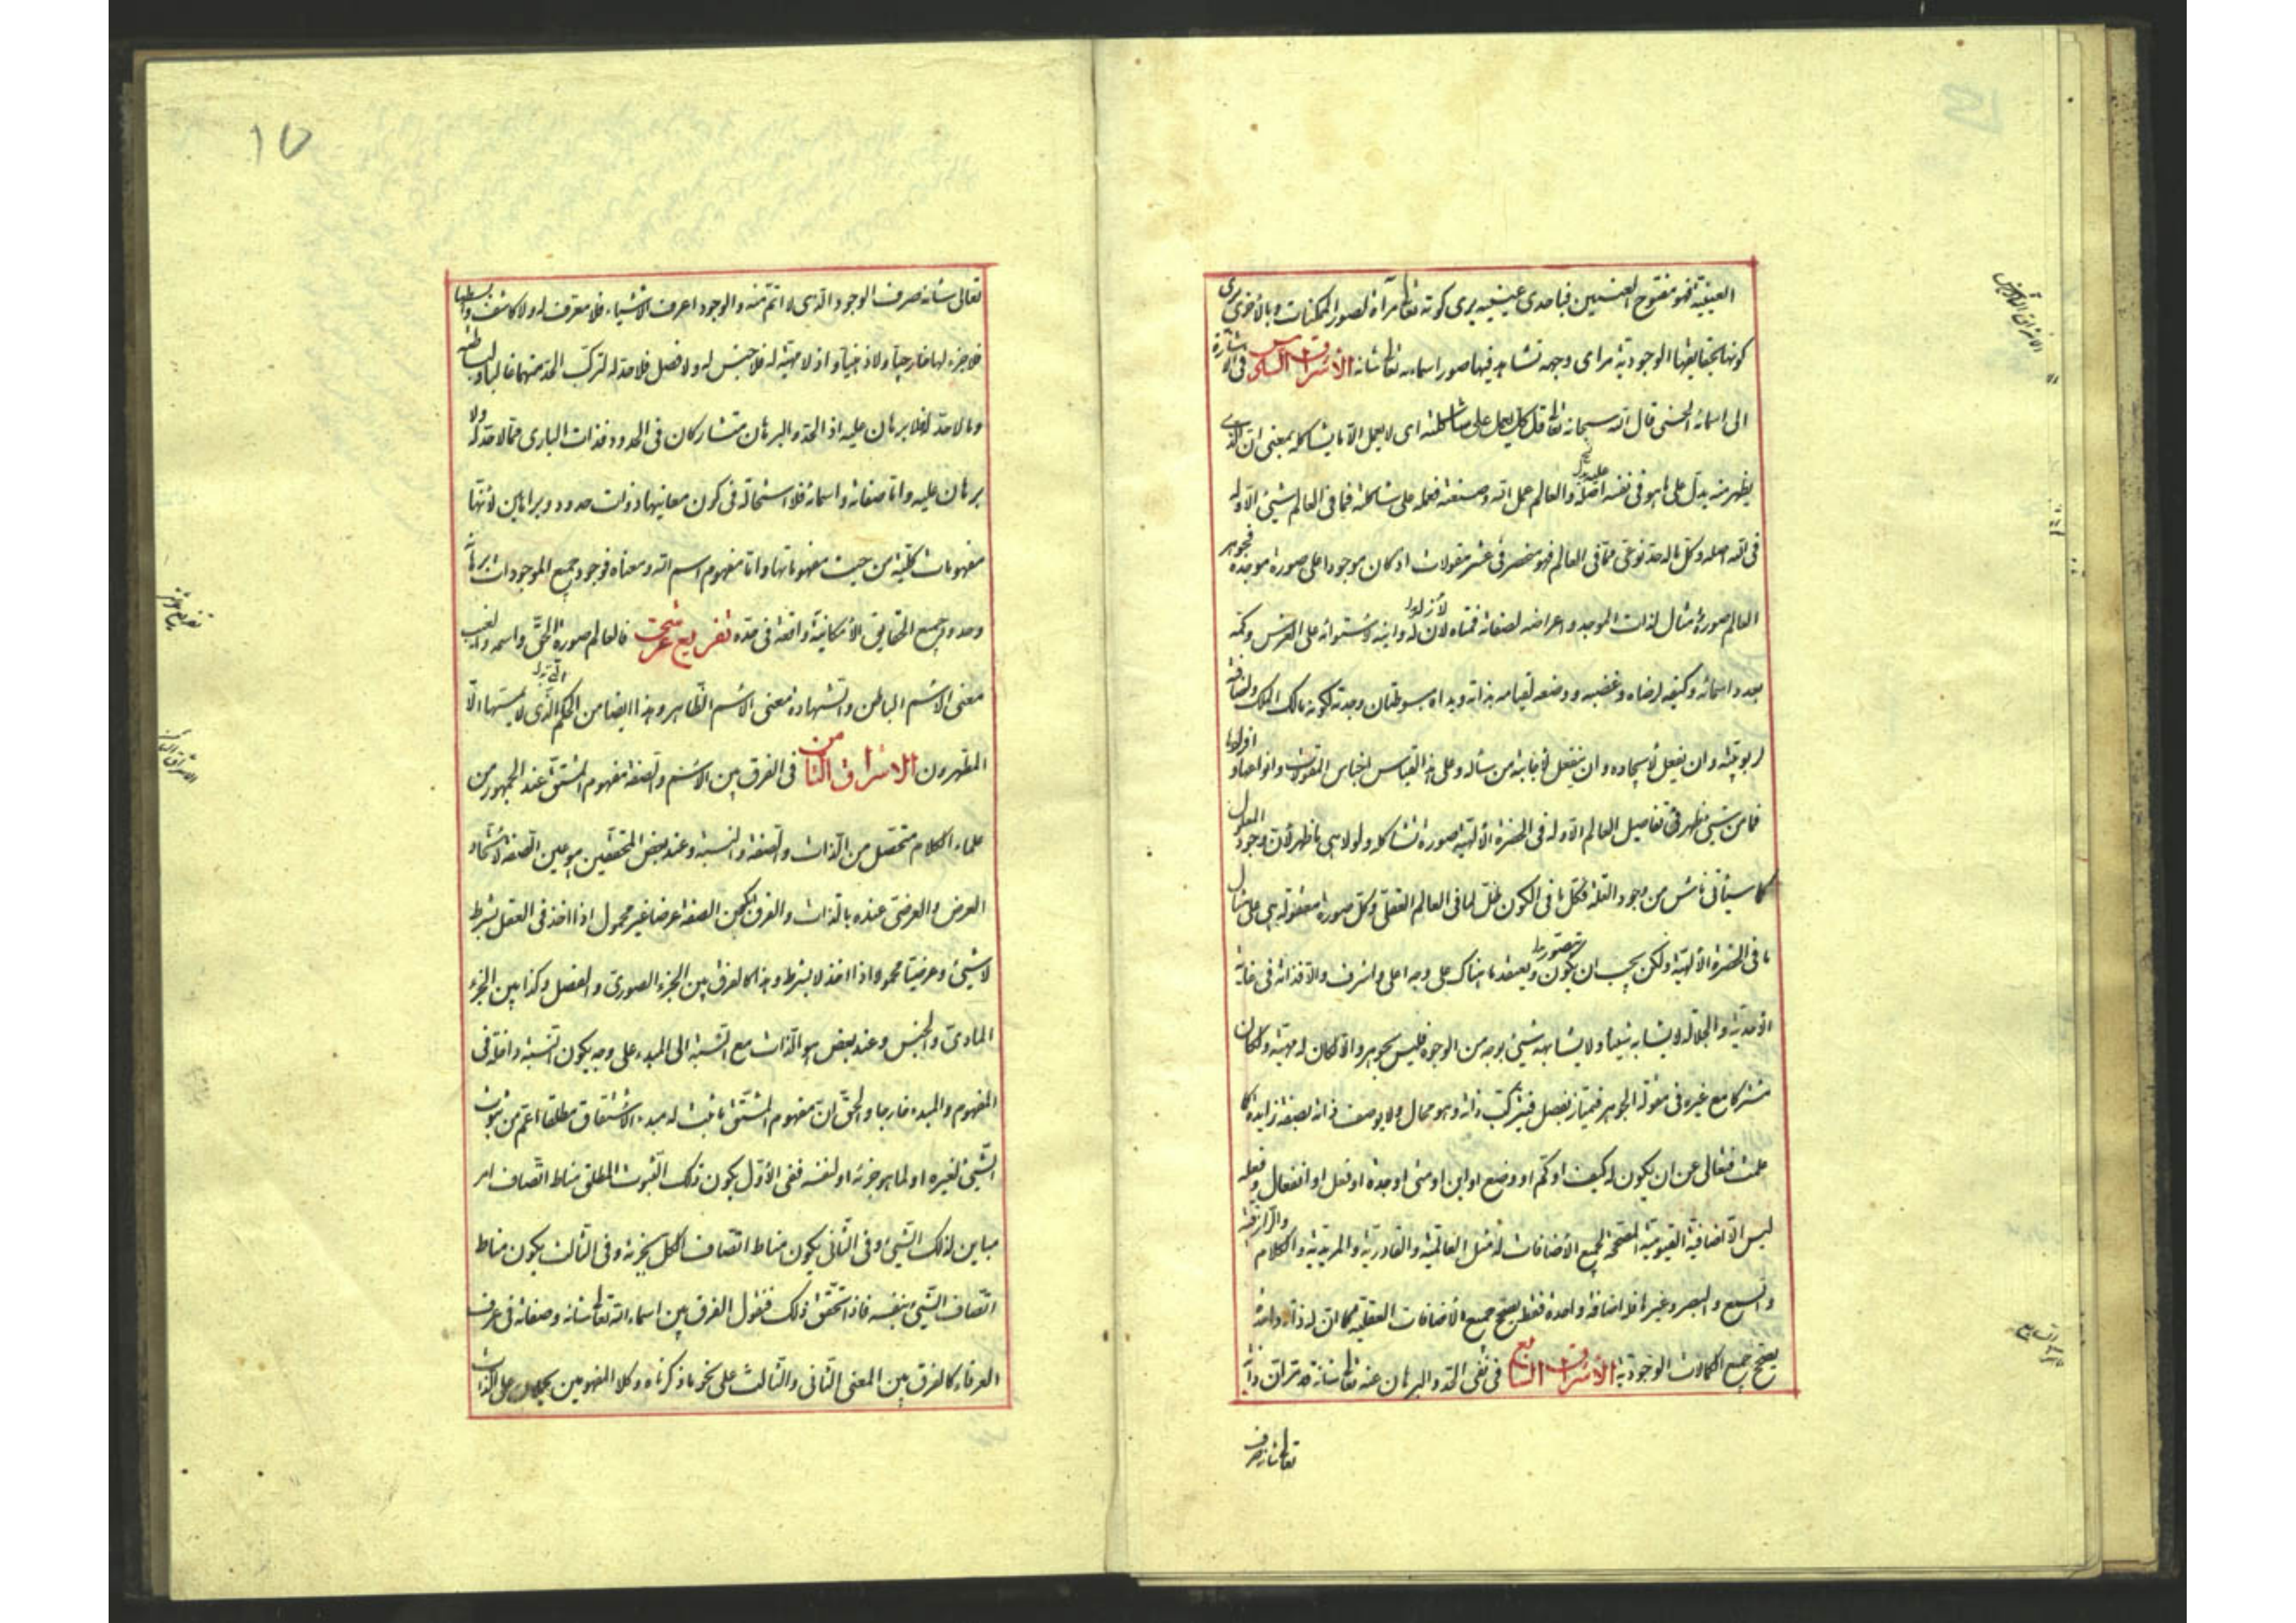 العينية فهو مفتوح العينين فباحدى عينيه يرى كونه تعا مرآة لصور الممكنات و بالأخرى يرى
كونها بحقايقها الوجودية مرائى وجهه تشاهد فيها صور اسمائه تعا شانه الاشراق السادس فى الاشارة
الى اسمائه الحسنى قال الله سبحانه تعا قل كل يعمل على شاكلته اى لا يعمل الا ما يشاكله بمعنى ان الذى
يظهر منه يدل على ما هو فى نفسه عليه والعالم عمل الله وصنعته فعمله على شاكلته فما فى العالم شىء الا و له
فى الله اصله وكل ما له حد نوعى مما فى العالم فهو منحصر فى عشر مقولات اذ كان موجودا على صورة موجده فجوهر
العالم صورة مثال لذات الموجد و اعراضه لصفاته فمتاه لازليته و اينه لاستوائه على العرش و كمه
لعدد اسمائه و كيفه لرضاه و غضبه و وضعه لقيامه بذاته و يداه مبسوطتان وجدته لكونه مالك الملك و اضافته
لربوبيته و ان يفعل لايجاده و ان ينفعل لاجابته من سأله و على هذا القياس اجناس المقولات و انواعها و افرادها
فما من شىء يظهر فى تفاصيل العالم الا و له فى الحضرة الالهية صورة تشاكله و لولا هى ما ظهر لان وجود المعلول
كما سيأتى ناش من وجود العلة فكل ما فى الكون ظل لما فى العالم العقلى و كل صورة معقولة هى على مثال
ما فى الحضرة الالهية و لكن يجب ان يتصور و يعتقد ما هناك على وجه اعلى و اشرف والا فذاته فى غاية
الاحدية و الجلالة لا يشابه شيئا و لا يشابهه شىء بوجه من الوجوه فليس بجوهر والا لكان له مهية و لكان
مشتركا مع غيره فى مقولة الجوهر فيمتاز بفصل فيتركب ذاته و هو محال و لا يوصف ذاته بصفة زايدة كما
علمت فتعالى عن ان يكون له كيف او كم او وضع او اين او متى او جدة او فعل او انفعال و فعله
ليس الا اضافية القيومية المصححة لجميع الاضافات له مثل العالمية و القادرية و المريدية و الكلام و الرازقية
و السمع و البصر و غيرها فله اضافة واحدة فقط يصحح جميع الاضافات العقلية كما ان له ذاتا واحدة
يصحح جميع الكمالات الوجودية الاشراق السابع فى نفى الحد و البرهان عنه تعا شانه قد مر ان ذاته
تعا شانه صرف
١٥
تعالى شانه صرف الوجود الذى لا اتم منه و الوجود اعرف الاشياء فلا معرف له و لا كاشف و ابسطها
فلا جزء لها خارجيا و لا ذهنيا و اذ لا مهية له فلا جنس له و لا فصل فلا حد له لتركب الحد منهما غالبا و لبساطته
و ما لا حد له فلا برهان عليه اذ الحد و البرهان متشاركان فى الحدود فذات البارى مما لا حد له و لا
برهان عليه و اما صفاته و اسمائه فلا استحالة فى كون معانيها ذوات حدود و براهين لانها
مفهومات كلية من حيث مفهوماتها و اما مفهوم اسم الله و معناه فوجود جميع الموجودات برهانه
و حدود جميع الحقايق الامكانية واقعة فى حده تفريع عرشى فالعالم صورة الحق و اسمه و الغيب
معنى الاسم الباطن و الشهادة معنى الاسم الظاهر و هذا ايضا من الحكم التى لا يمسها الا
المطهرون الاشراق الثامن فى الفرق بين الاسم و الصفة مفهوم المشتق عند الجمهور من
علماء الكلام متحصل من الذات و الصفة و النسبة و عند بعض المحققين هو عين الصفة لاتحاد
العرض و العرضى عنده بالذات و الفرق بكون الصفة عرضا غير محمول اذا اخذ فى العقل بشرط
لا شىء و عرضيا محمولا اذا اخذ لا بشرط و هذا كالفرق بين الجزء الصورى و الفصل و كذا بين الجزء
المادى و الجنس و عند بعض هو الذات مع النسبة الى المبدء على وجه يكون النسبة داخلة فى
المفهوم و المبدء خارجا و الحق ان مفهوم المشتق ما ثبت له مبدء الاشتقاق مطلقا اعم من ثبوت
الشىء لغيره او لما هو جزئه او لنفسه ففى الاول يكون ذلك الثبوت المطلق مناط اتصاف امر
مباين لذلك الشىء و فى الثانى يكون مناط اتصاف الكل بجزئه و فى الثالث يكون مناط
اتصاف الشىء بنفسه فاذا تحقق ذلك فنقول الفرق بين اسماء الله تعا شانه و صفاته فى عرف
العرفاء كالفرق بين المعنى الثانى و الثالث على نحو ما ذكرناه و كلا المفهومين يحملان على الذات